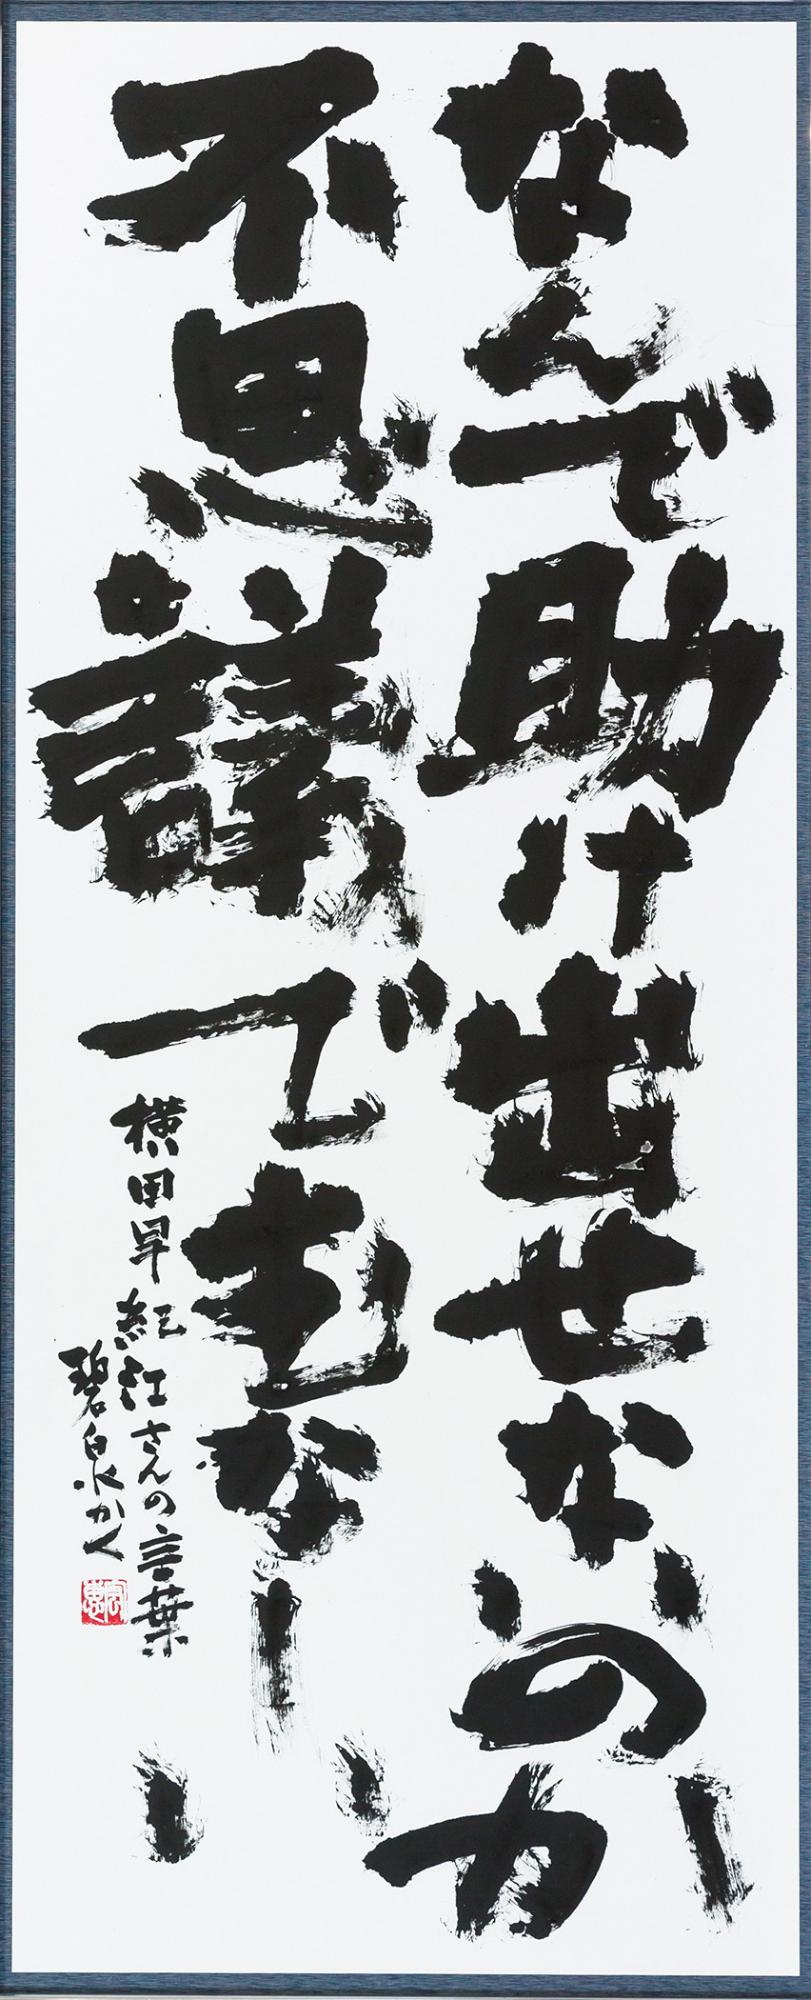 なんで助け出せないのか
不思議でむなしい
横田早紀江さんの言葉
碧泉かく